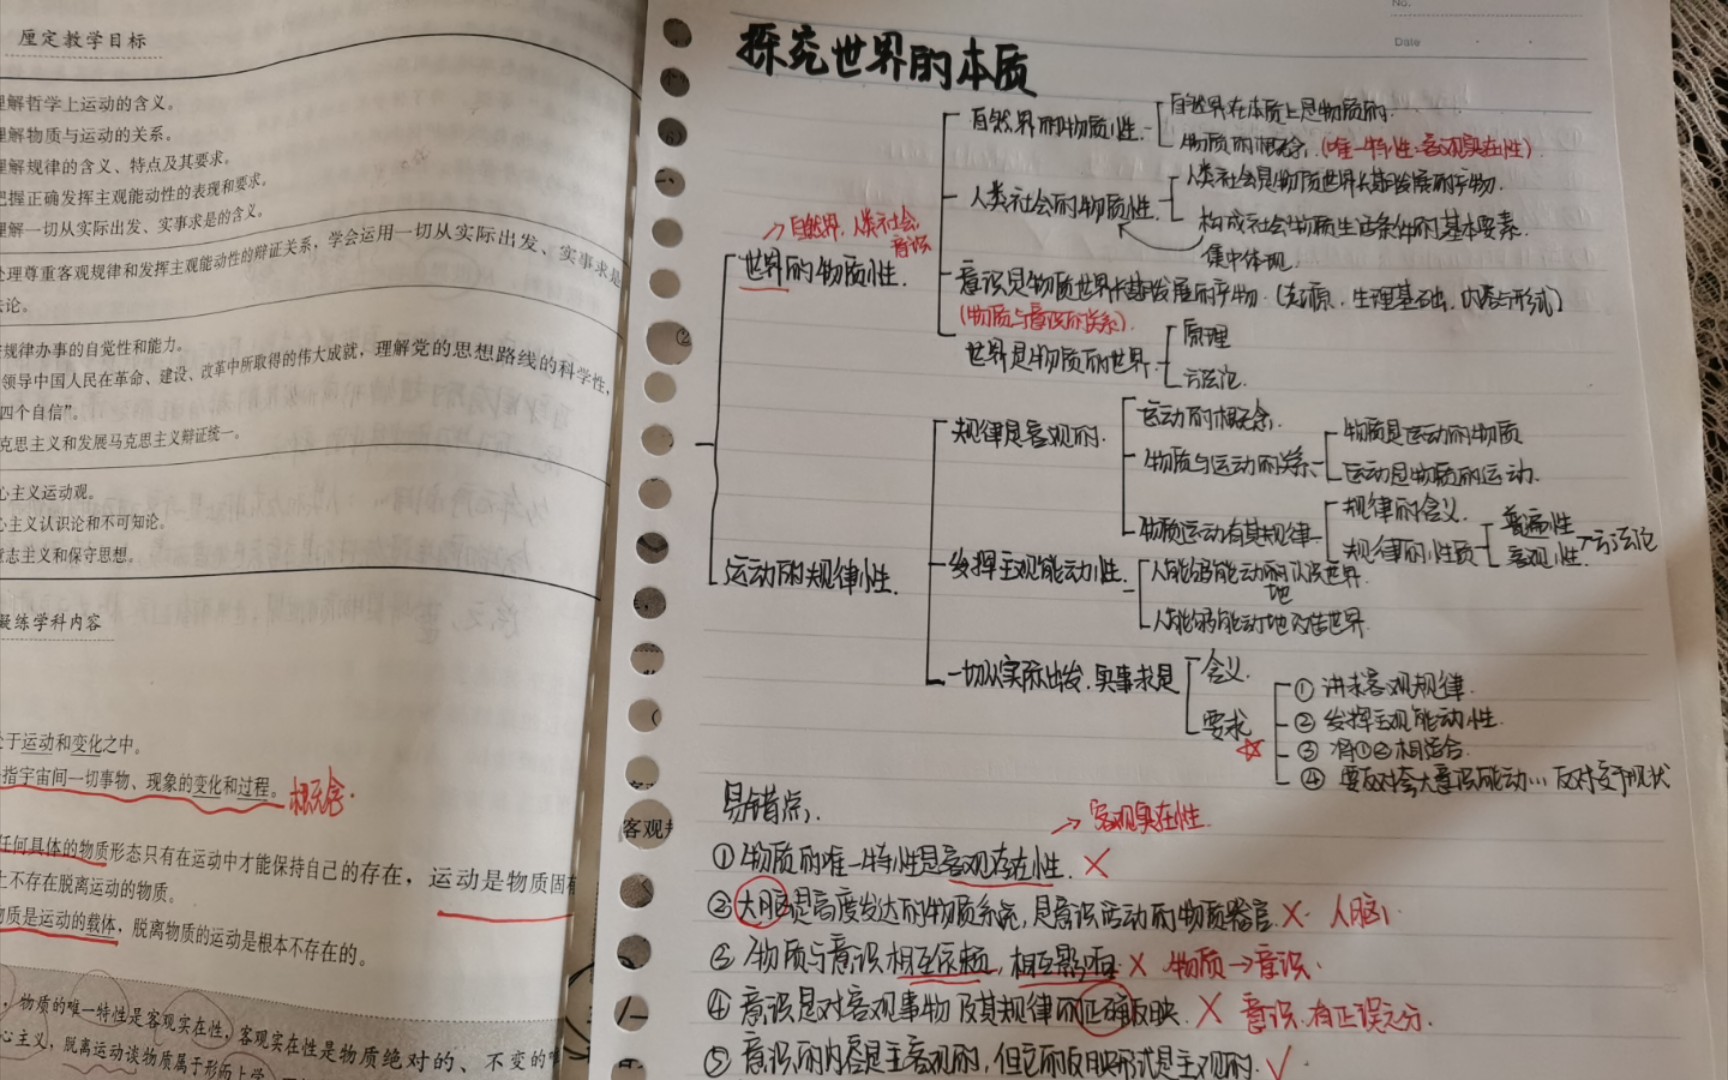 厘定教学目标
理解哲学上运动的含义。
理解物质与运动的关系。
理解规律的含义、特点及其要求。
把握正确发挥主观能动性的表现和要求。
理解一切从实际出发、实事求是的含义。
处理尊重客观规律和发挥主观能动性的辩证关系，学会运用一切从实际出发、实事求是
法论。
规律办事的自觉性和能力。
领导中国人民在革命、建设、改革中所取得的伟大成就，理解党的思想路线的科学性，
四个自信”。
克思主义和发展马克思主义辩证统一。
心主义运动观。
心主义认识论和不可知论。
意志主义和保守思想。
凝练学科内容
处于运动和变化之中。
指宇宙间一切事物、现象的变化和过程。
概念.
任何具体的物质形态只有在运动中才能保持自己的存在，运动是物质固有
上不存在脱离运动的物质。
物质是运动的载体，脱离物质的运动是根本不存在的。
，物质的唯一特性是客观实在性，客观实在性是物质绝对的、不变的唯
心主义，脱离运动谈物质属于形而上学
No.
Date
探究世界的本质
世界的物质性.
→自然界.人类社会.
意识
自然界的物质性.
自然界在本质上是物质的.
物质的概念.(唯一特性:客观实在性).
人类社会的物质性.
人类社会是物质世界长期发展的产物.
构成社会物质生活条件的基本要素.
集中体现.
意识是物质世界长期发展的产物.(起源.生理基础.内容与形式)
(物质与意识的关系).
世界是物质的世界.
原理
方法论.
运动的规律性.
规律是客观的.
运动的概念.
物质与运动的关系
物质是运动的物质
运动是物质的运动.
物质运动有其规律
规律的含义.
规律的性质
普遍性
客观性
→方法论
发挥主观能动性.
人能够能动的认识世界.
地
人能够能动地改造世界.
一切从实际出发.实事求是
含义.
要求
① 讲求客观规律.
② 发挥主观能动性.
③ 将①②相结合.
④ 要反对夸大意识能动…反对安于现状
易错点.
→ 客观实在性.
① 物质的唯一特性是客观存在性. ×
② 大脑是高度发达的物质系统,是意识活动的物质器官. ×. 人脑.
③ 物质与意识相互依赖,相互影响. × 物质→意识.
④ 意识是对客观事物及其规律的正确反映. × 意识.有正误之分.
⑤ 意识的内容是主客观的,但它的反映形式是主观的. √.
客观